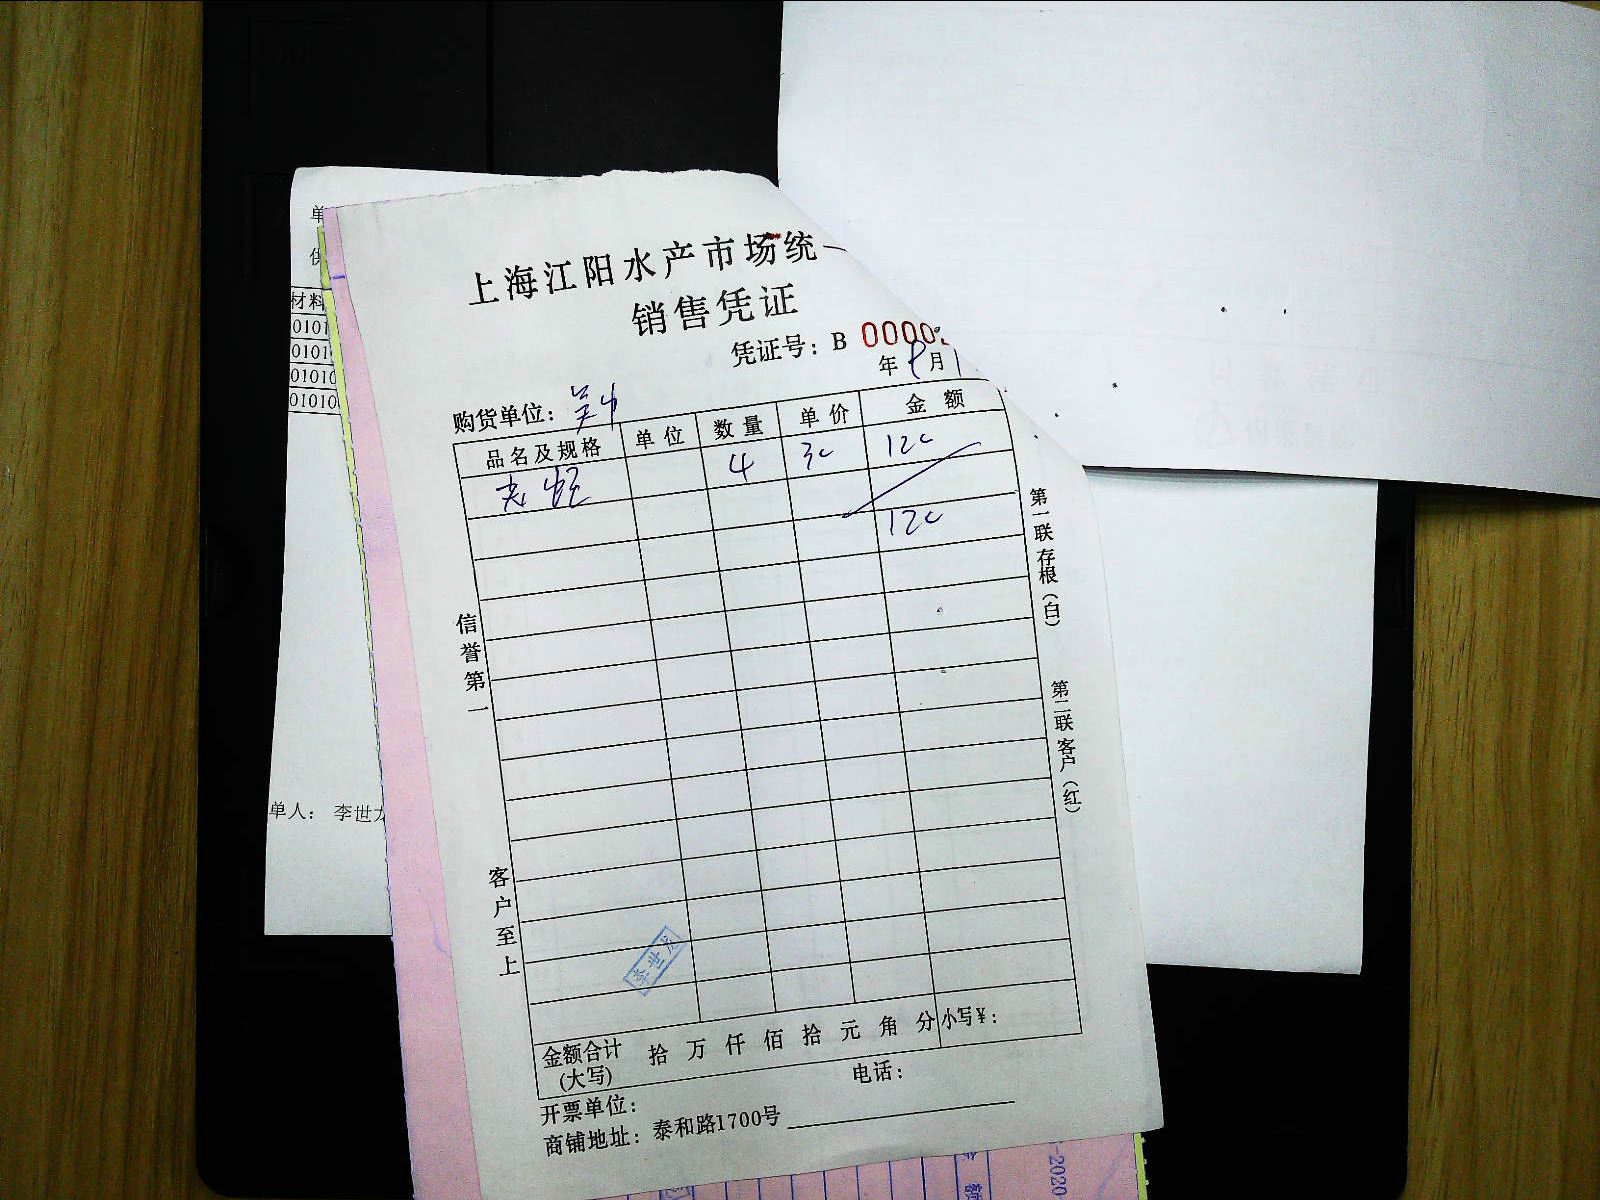 上海江阳水产市场统一
销售凭证
凭证号：B 0000
年 8 月 1
购货单位：
品名及规格 单位 数量 单价 金额
4 30 120
120
信誉第一
客户至上
第一联存根（白）
第二联客户（红）
李世龙
金额合计（大写） 拾 万 仟 佰 拾 元 角 分 小写¥：
电话：
开票单位：
商铺地址：泰和路1700号
单
供
材料
0101
0101
01010
01010
单人： 李世龙
-2020